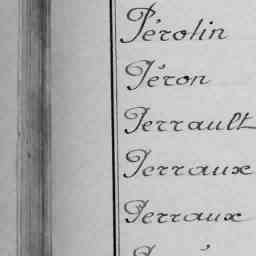 Pérolin
Péron
Perrault
Perraux
Perraux